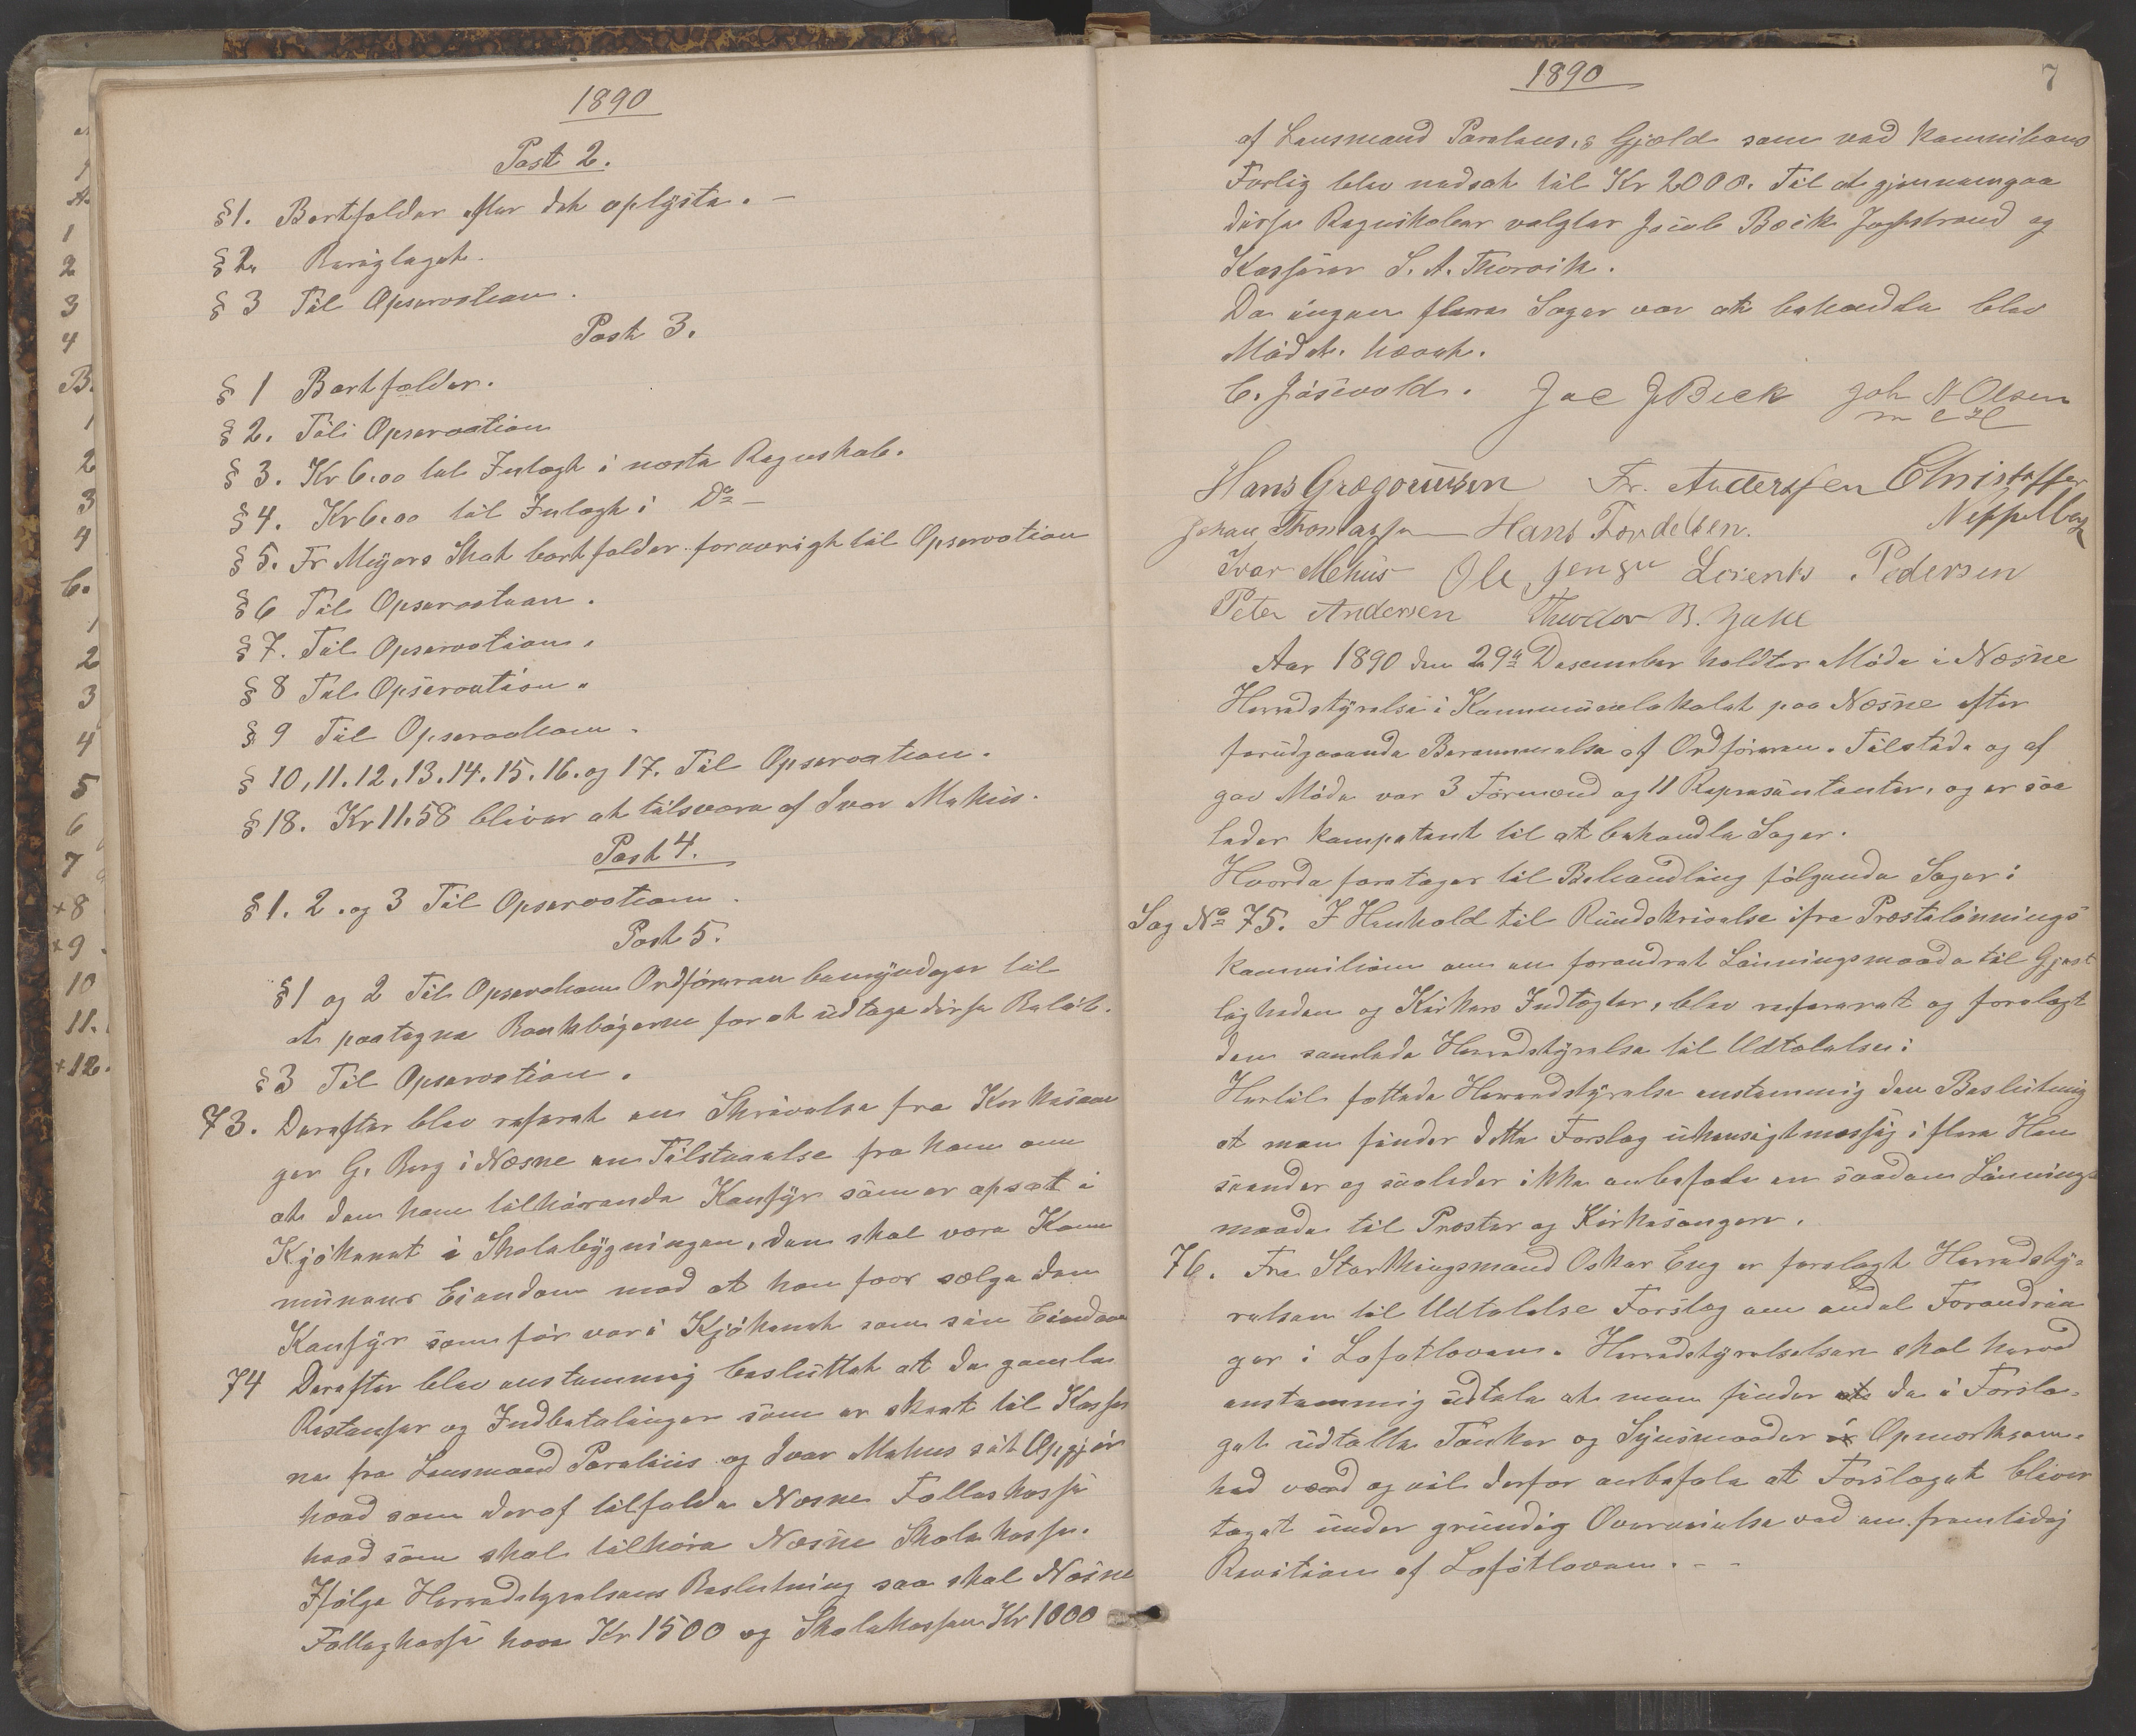 1890
Post 2.
§1. Bortfalder efter det oplyste. -
§2. Beroglaget.
§ 3 Til Opservation.
Post 3.
§ 1 Bortfalder.
§ 2. Til Opservation
§ 3. Kr 6.00 til Indtægt i næste Regnskab.
§ 4. Kr 6.00 til Indtægt i Do -
§ 5. Fr Meyers Skat bortfalder forøvrigt til Opservation
§ 6 Til Opservation.
§ 7. Til Opservation.
§ 8 Til Opservation.
§ 9 Til Opservation.
§ 10, 11. 12, 13. 14. 15. 16. og 17. Til Opservation.
§ 18. Kr 11.58 bliver at tilsvare af Ivar Mehus.
Post 4.
§ 1. 2. og 3 Til Opservation.
Post 5.
§ 1 og 2 Til Opservation Ordføreren bemyndiges til
at paategne Bankbøgerne for at udtage disse Beløb.
§ 3 Til Opservation.
73. Derefter blev referet en Skrivelse fra Kirkesan
ger G. Berg i Næsne en Tilstaaelse fra ham om
at den ham tilhørende Komfyr som er opsat i
Kjøkenet i Skolebygningen, den skal være Kom
munens Eiendom mod at han faar sælge den
Komfyr som før var i Kjøkenet som sin Eiendom
74 Derefter blev enstemmig besluttet at de gamle
Restanser og Indbetalinger som er skeet til Kasser
ne fra Lensmand Parelius og Ivar Mehus sit Opgjør
hvad som deraf tilfalde Næsne Felleskasse
hvad som skal tilhøre Næsne Skolekasse.
Ifølge Herredstyrelsens Beslutning saa skal Næsne
Felleskasse have Kr 1500 og Skolekassen Kr 1000
1890
7
af Lensmand Parelius,s Gjæld som ved Kommitions
Forlig blev nedsat til Kr 2000. Til at gjennemgaa
disse Regnskaber valgtes Jacob Beck Forstrand og
Kasserer S. A. Thorvik.
Da ingen flere Sager var at behandle blev
Mødet hævet.
C. Jøsevold. Jac J Beck Joh N Olsen
Hans Grægoriussen Fr. Anderssen Christoffer
Neppelberg
Johan Thomassen Hans Fordelsen.
Ivar Mehus Ole Jensen Lorents Pedersen
Peter Andersen Theodor B. Zahl
Aar 1890 den 29de Desember holdtes Møde i Næsne
Herredstyrelse i Kommunelokalet paa Næsne efter
forudgaaende Berammelse af Ordføreren. Tilstede og af
gav Møde var 3 Formænd og 11 Repræsentanter, og er saa
ledes kompetent til at behandle Sager.
Hvorda foretages til Behandling følgende Sager:
Sag No 75. I Henhold til Rundskrivelse ifra Prestelønnings
kommitioen om en forandret Lønningsmaade til Geist
ligheden og Kirkens Indtægter, blev refereret og forelagt
den samlede Herredstyrelse til Udtalelse:
Hertil fattede Herredstyrelse enstemmig den Beslutning
at man finder dette Forslag uhensigtmessig i flere Hen
seender og saaledes ikke anbefale en saadan Lønnings
maade til Prester og Kirkesangere.
76. Fra Storthingsmand Oskar Eng er forelagt Herredsty-
relsen til Udtalelse Forslag om endel Forandrin
ger i Lofotloven. Herredstyrelselsen skal herved
enstemmig udtale at man finder at de i Forsla-
get udtalte Tanker og Synsmaader er Opmerksom-
hed værd og vil derfor anbefale at Forslaget bliver
taget under grundig Overveielse ved en fremtidig
Revition af Lofotloven. - -